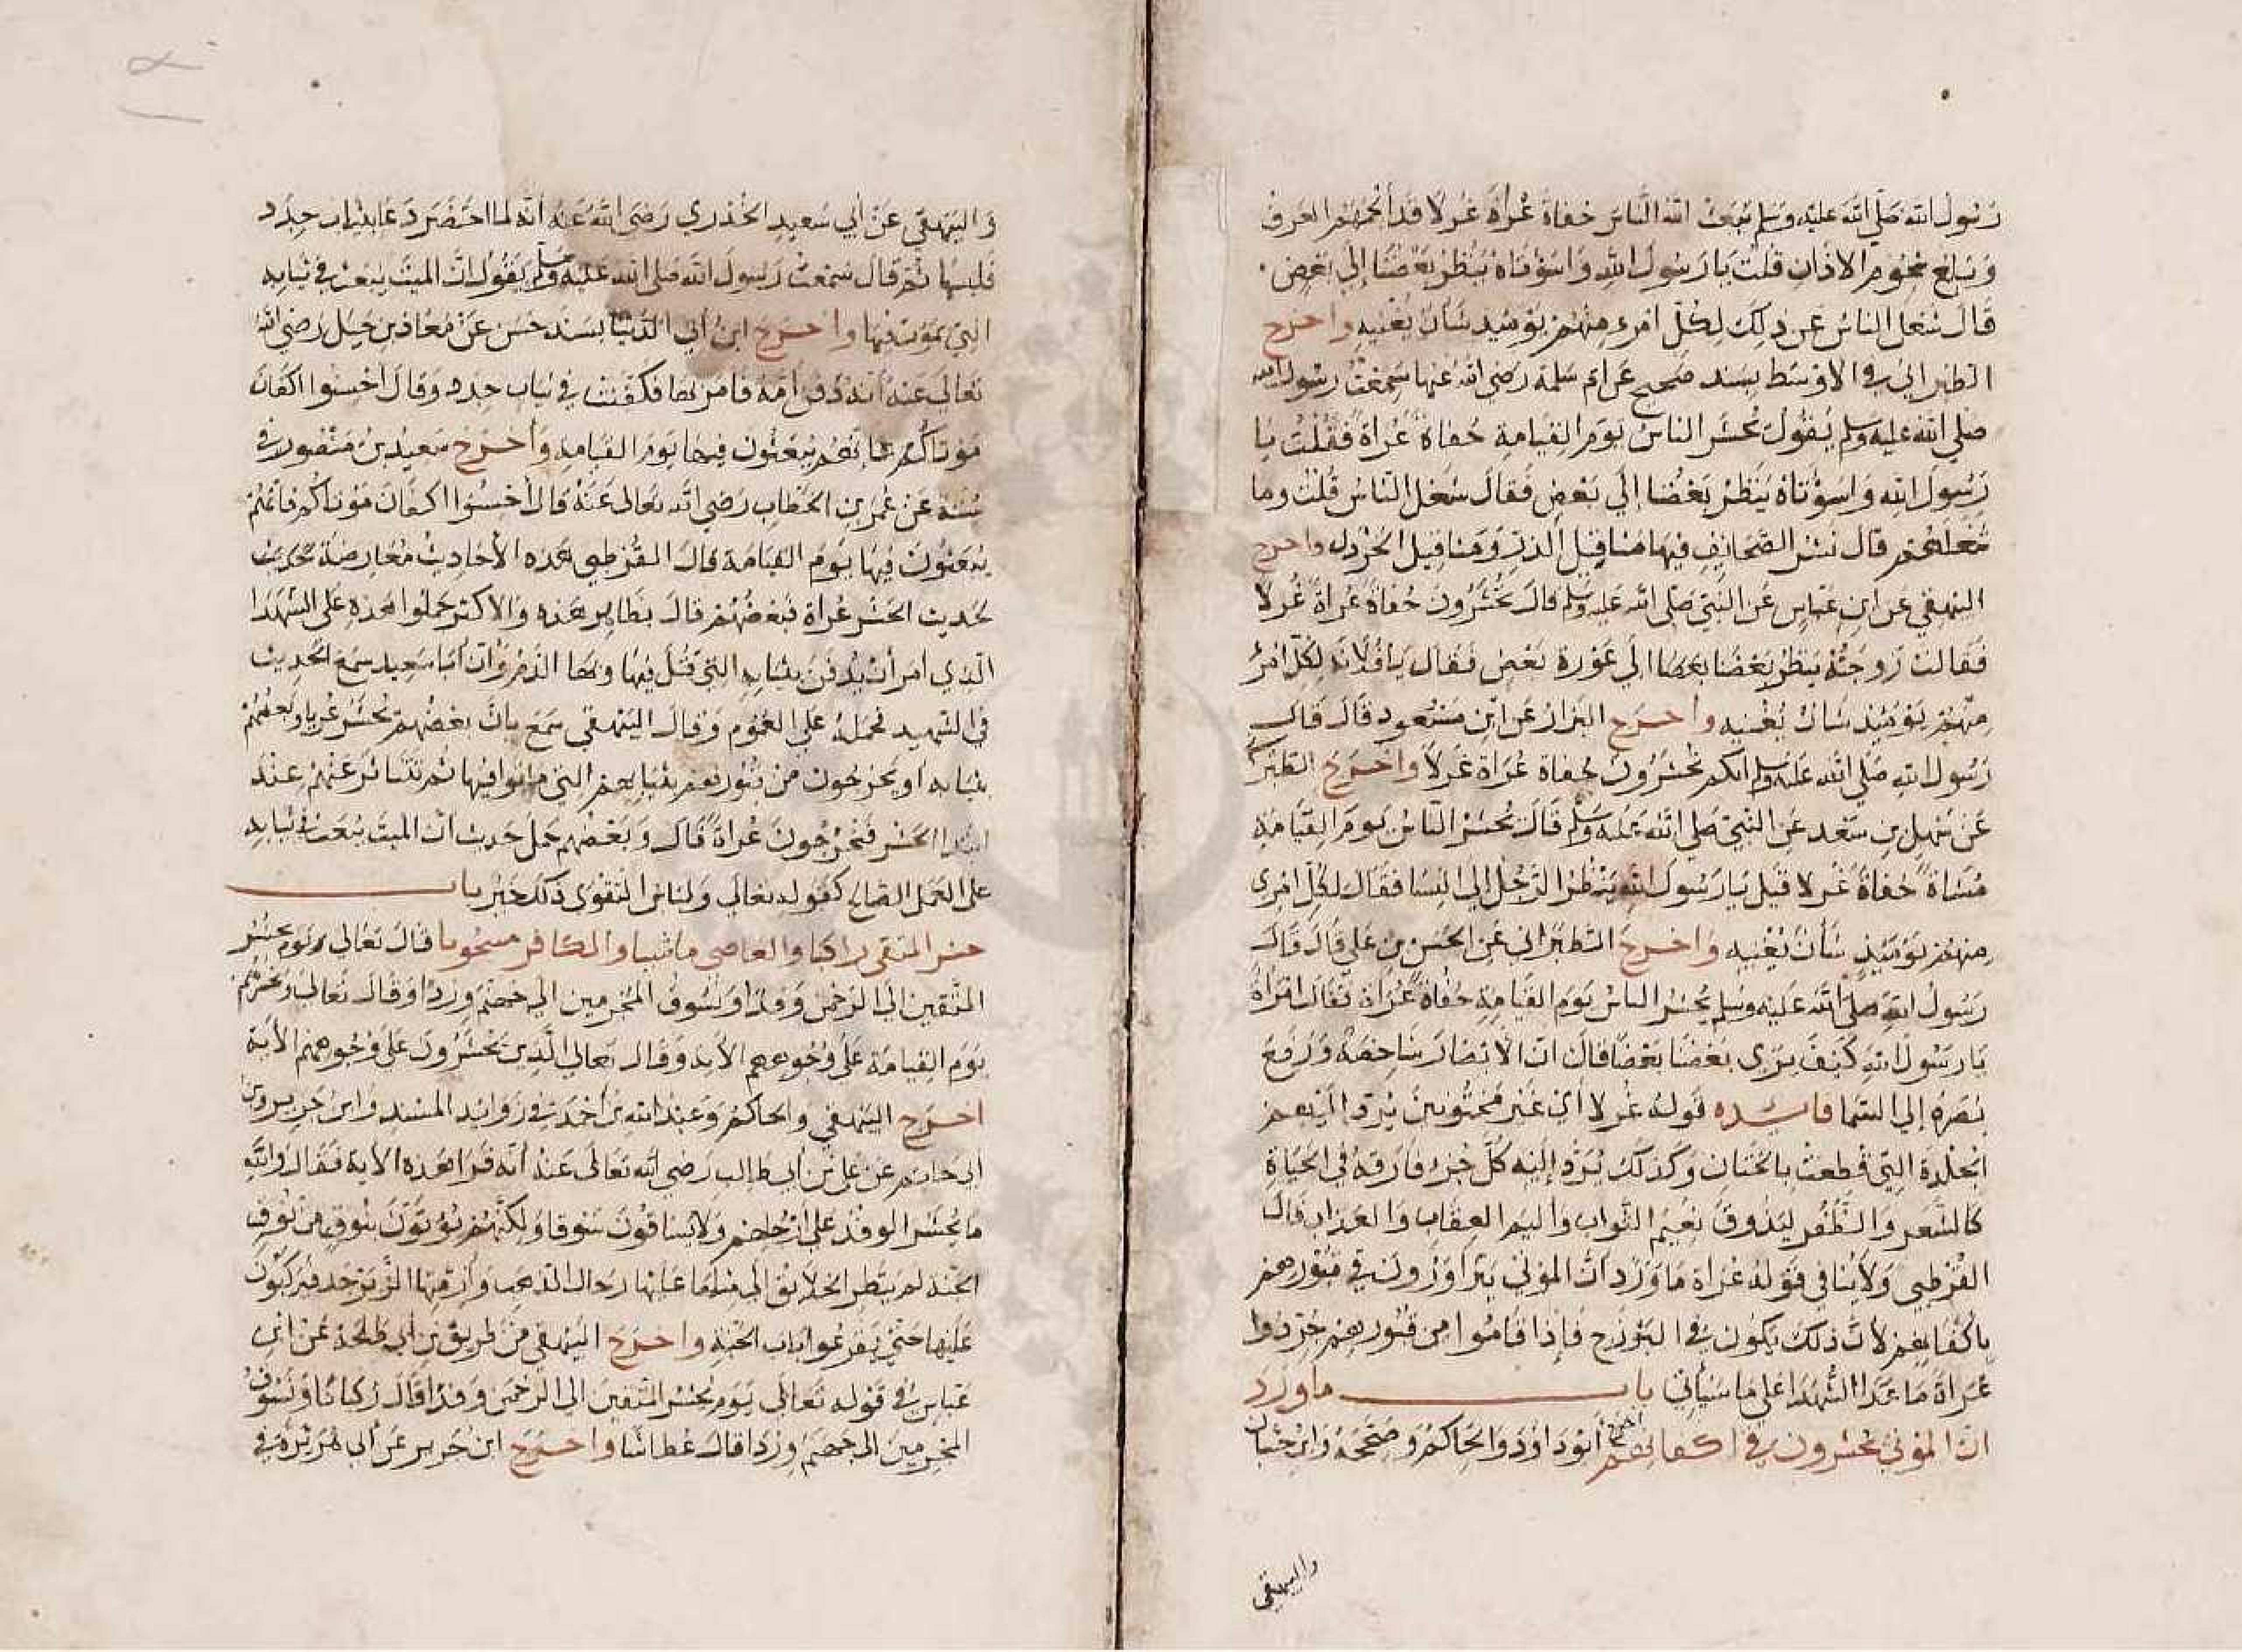 رسول الله صلى الله عليه وسلم يبعث الله الناس حفاة عراة غرلا قد ألجمهم العرق
وبلغ شحوم الاذان قلت يا رسول الله واسوءتاه ينظر بعضنا إلى بعض
قال شغل الناس عن ذلك لكل امرء منهم يومئذ شأن يغنيه واخرج
الطبراني في الاوسط بسند صحيح عن ام سلمة رضي الله عنها سمعت رسول الله
صلى الله عليه وسلم يقول يحشر الناس يوم القيامة حفاة عراة فقلت يا
رسول الله واسوءتاه ينظر بعضنا إلى بعض فقال شغل الناس قلت وما
شغلهم قال نشر الصحايف فيها مثاقيل الذر ومثاقيل الخردل واخرج
البيهقي عن ابن عباس عن النبي صلى الله عليه وسلم قال تحشرون حفاة عراة غرلا
فقالت زوجته ينظر بعضنا إلى عورة بعض فقال يا فلانة لكل امرئ
منهم يومئذ شأن يغنيه وأخرج البزار عن ابن مسعود قال قال
رسول الله صلى الله عليه وسلم انكم تحشرون حفاة عراة غرلا واخرج الطبراني
عن سهل بن سعد عن النبي صلى الله عليه وسلم قال يحشر الناس يوم القيامة
مشاة حفاة غرلا قيل يا رسول الله ينظر الرجل إلى النسا فقال لكل امرئ
منهم يومئذ شأن يغنيه واخرج الطبراني عن الحسن بن علي قال قال
رسول الله صلى الله عليه وسلم يحشر الناس يوم القيامة حفاة عراة فقالت امراة
يا رسول الله كيف يرى بعضنا بعضا قال ان الابصار شاخصة ورفع
بصره إلى السما فائدة قوله غرلا أي غير مختونين ترد اليهم
الجلدة التي قطعت بالختان وكذلك يرد إليه كل جزء فارقه في الحياة
كالشعر والظفر ليذوق نعيم الثواب وأليم العقاب والعذاب قال
القرطبي ولا ينافي قوله عراة ما ورد ان الموتى يتزاورون في قبورهم
باكفانهم لان ذلك يكون في البرزخ فإذا قاموا من قبورهم جردوا
عراة ما عدا الشهدا على ما سيأتي باب ما ورد
ان الموتى يحشرون في اكفانهم اخرج أبو داود والحاكم وصححه وابن حبان
والبيهقي
والبيهقي عن أبي سعيد الخدري رضي الله عنه أنه لما احتضر دعا بثياب جدد
فلبسها ثم قال سمعت رسول الله صلى الله عليه وسلم يقول ان الميت يبعث في ثيابه
التي يموت فيها واخرج ابن أبي الدنيا بسند حسن عن معاذ بن جبل رضي الله
تعالى عنه أنه دفن امه فامر بها فكفنت في ثياب جدد وقال احسنوا اكفان
موتاكم فانهم يبعثون فيها يوم القيامة وأخرج سعيد بن منصور في
سننه عن عمر بن الخطاب رضي الله تعالى عنه قال أحسنوا اكفان موتاكم فانهم
يبعثون فيها يوم القيامة قال القرطبي هذه الأحاديث معارضة لحديث
لحديث الحشر عراة فبعضهم قال بظاهر هذه والاكثر حملوا هذه على الشهدا
الذي امر أن يدفن بثيابه التي قتل فيها وبها الدم وان أبا سعيد سمع الحديث
في الشهيد فحمله على العموم وقال البيهقي بان بعضهم يحشر عريانا وبعضهم
بثيابه او يخرجون من قبورهم بثيابهم التي ماتوا فيها ثم تتناثر عنهم عند
ابتدا الحشر فيخرجون عراة قال وبعضهم حمل حديث ان الميت يبعث في ثيابه
على العمل الصالح كقوله تعالى ولباس التقوى ذلك خير باب
حشر المتقي راكبا والعاصي ماشيا والكافر مسحوبا قال تعالى يوم نحشر
المتقين إلى الرحمن وفدا ونسوق المجرمين الى جهنم وردا وقال تعالى ونحشرهم
يوم القيامة على وجوههم الاية وقال تعالى الذين يحشرون على وجوههم الاية
اخرج البيهقي والحاكم وعبد الله بن أحمد في زوايد المسند وابن جرير وابن
ابي حاتم عن علي بن أبي طالب رضي الله تعالى عنه أنه قرا هذه الاية فقال والله
ما يحشر الوفد على ارجلهم ولا يساقون سوقا ولكنهم يؤتون بنوق من نوق
الجنة لم ينظر الخلايق الى مثلها عليها رحال الذهب وأزمتها الزبرجد فيركبون
عليها حتى يقرعوا باب الجنة واخرج البيهقي من طريق بن أبي طلحة عن ابن
عباس في قوله تعالى يوم نحشر المتقين إلى الرحمن وفدا قال ركبانا ونسوق
المجرمين الى جهنم وردا قال عطاشا واخرج ابن جرير عن أبي هريرة في